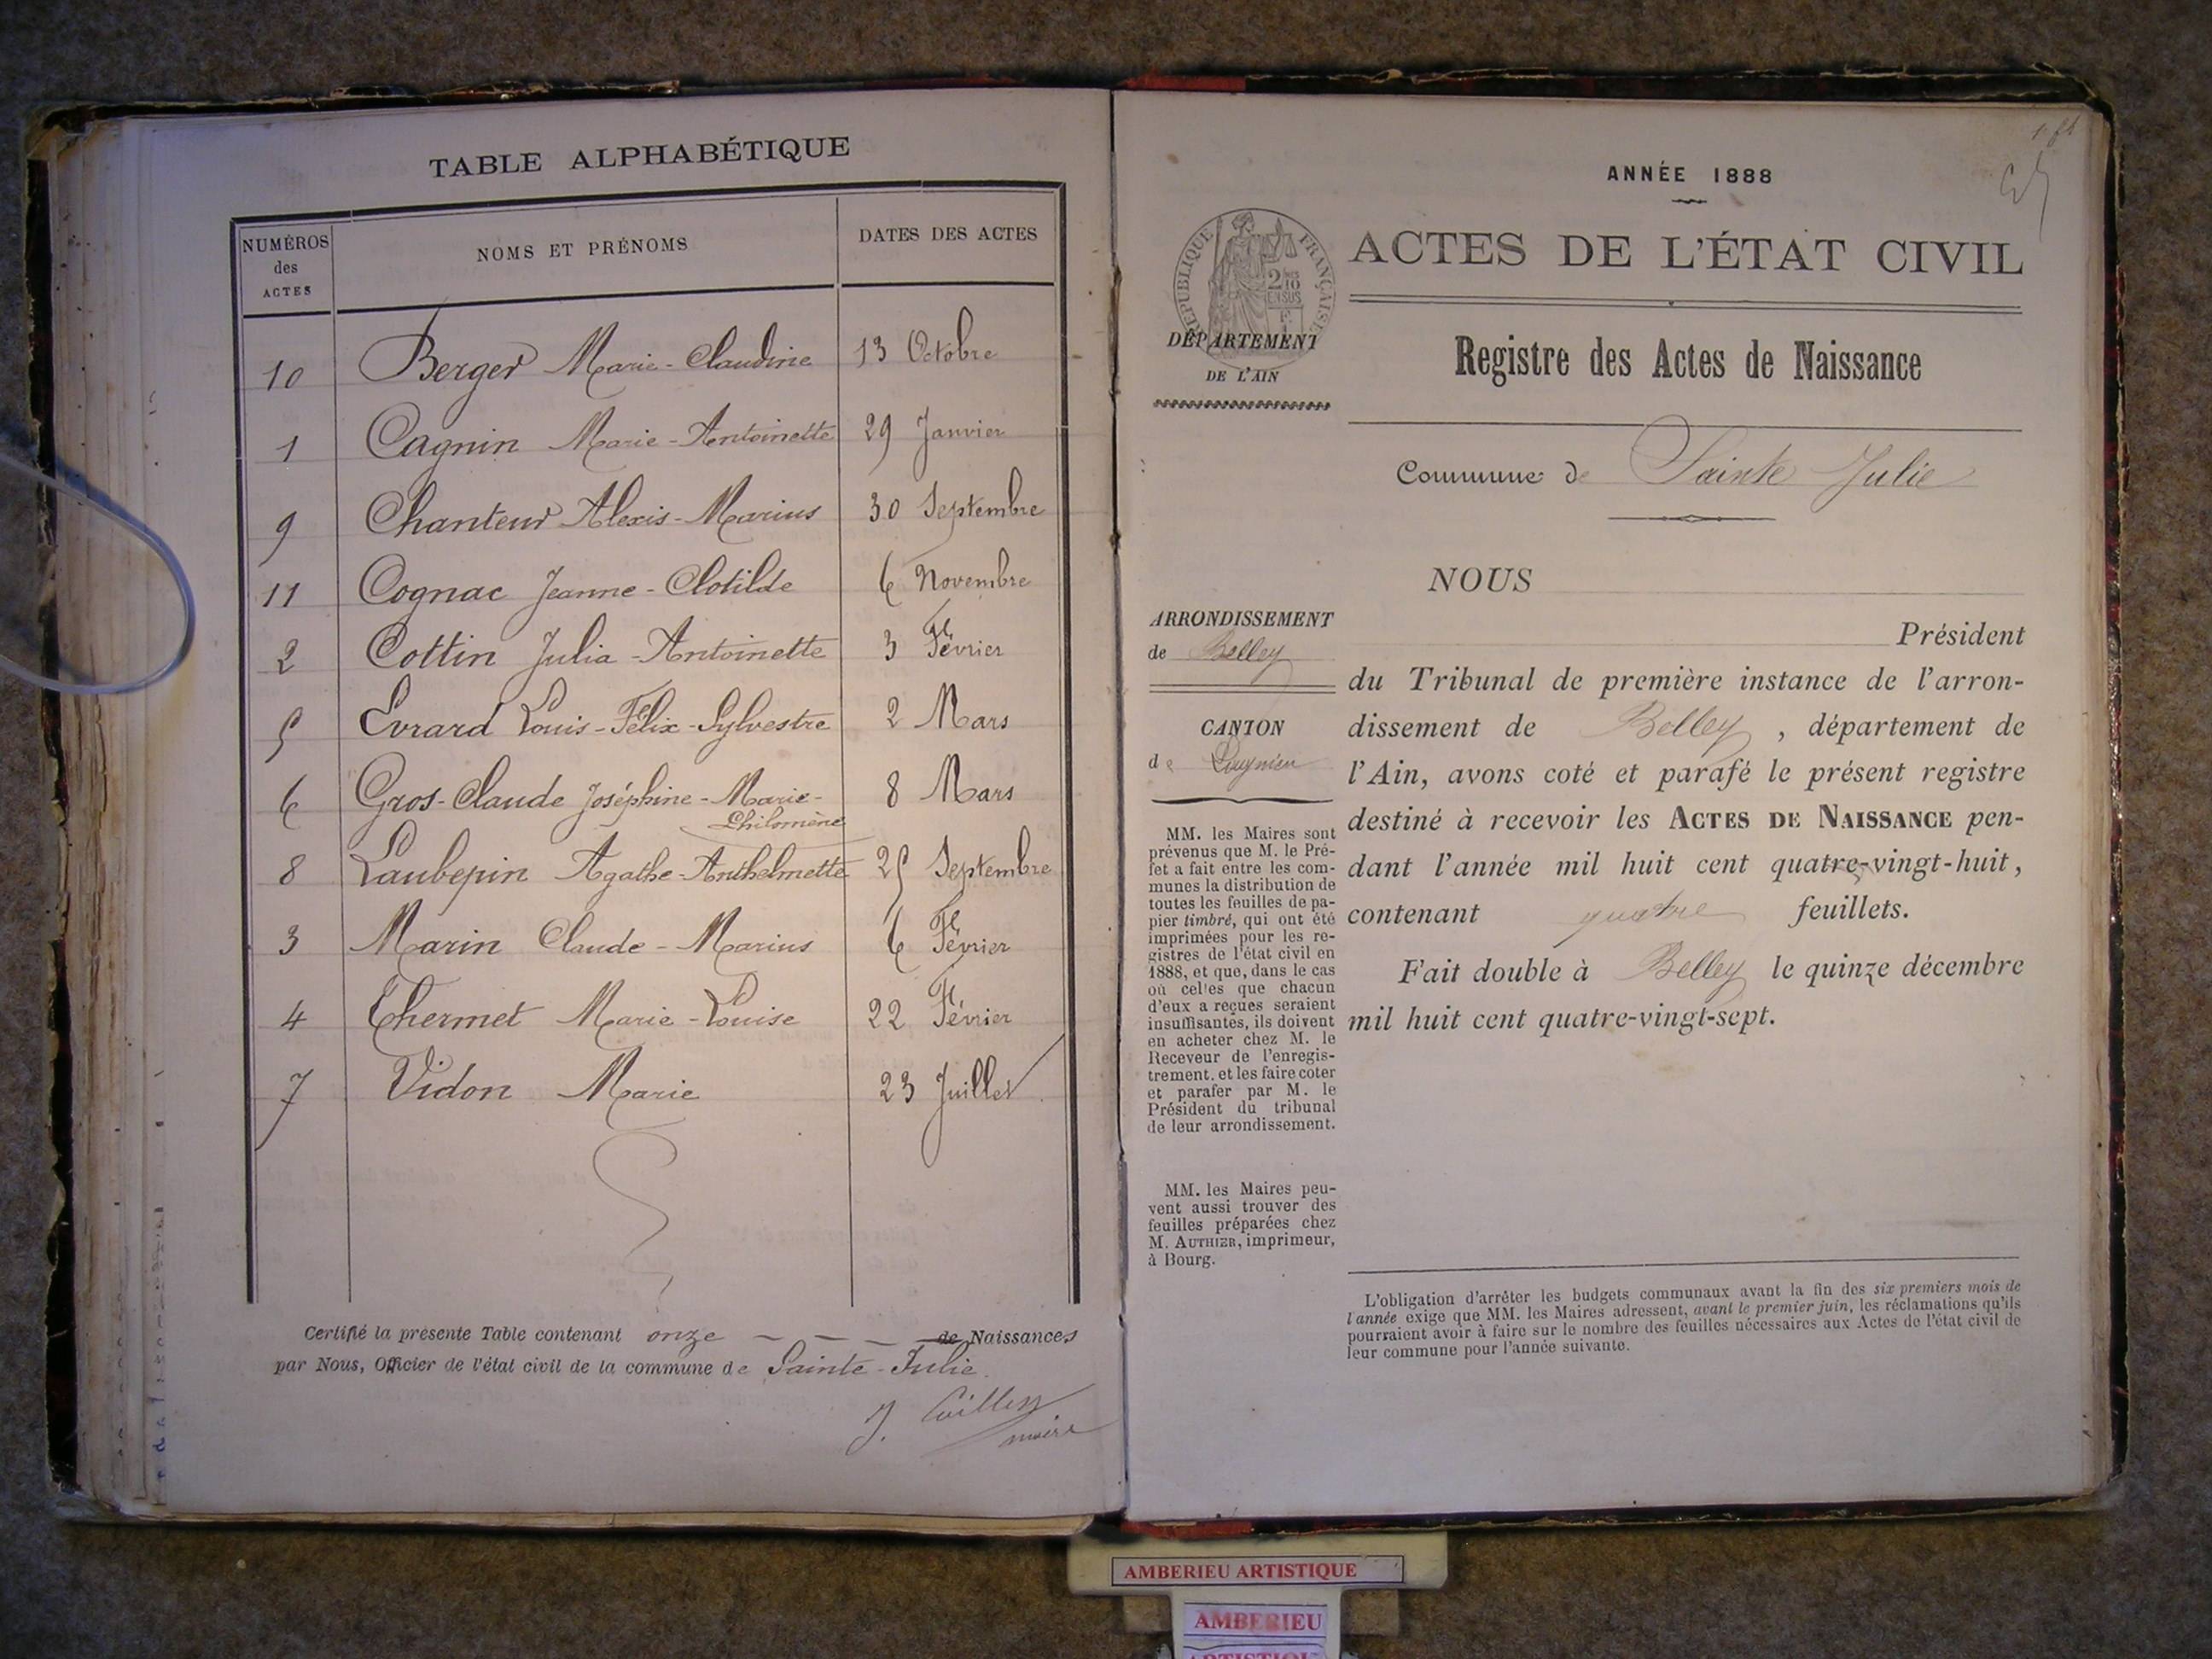 TABLE ALPHABÉTIQUE
NUMÉROS
des
ACTES
NOMS ET PRÉNOMS
DATES DES ACTES
10 Berger Marie-Claudine 13 Octobre
1 Cagnin Marie-Antoinette 29 Janvier
9 Chanteur Alexis-Marius 30 Septembre
11 Cognac Jeanne-Clotilde 6 Novembre
2 Cottin Julia-Antoinette 3 Février
5 Evrard Louis-Félix-Sylvestre 2 Mars
6 Gros-Claude Joséphine-Marie- 8 Mars
Philomène
8 Laubepin Agathe-Anthelmette 25 Septembre
3 Marin Claude-Marius 6 Février
4 Thermet Marie-Louise 22 Février
7 Vidon Marie 23 Juillet
Certifié la présente Table contenant onze — — — de Naissances
par Nous, Officier de l'état civil de la commune de Sainte-Julie.
J.
maire
ANNÉE 1888
ACTES DE L'ÉTAT CIVIL
RÉPUBLIQUE FRANÇAISE
DÉPARTEMENT
DE L'AIN
Registre des Actes de Naissance
Commune de Sainte Julie
NOUS
Président
du Tribunal de première instance de l'arron-
dissement de Belley, département de
l'Ain, avons coté et parafé le présent registre
destiné à recevoir les ACTES DE NAISSANCE pen-
dant l'année mil huit cent quatre-vingt-huit,
contenant quatre feuillets.
Fait double à Belley le quinze décembre
mil huit cent quatre-vingt-sept.
ARRONDISSEMENT
de Belley
CANTON
de Lagnieu
MM. les Maires sont
prévenus que M. le Pré-
fet a fait entre les com-
munes la distribution de
toutes les feuilles de pa-
pier timbré, qui ont été
imprimées pour les re-
gistres de l'état civil en
1888, et que, dans le cas
où celles que chacun
d'eux a reçues seraient
insuffisantes, ils doivent
en acheter chez M. le
Receveur de l'enregis-
trement, et les faire coter
et parafer par M. le
Président du tribunal
de leur arrondissement.
MM. les Maires peu-
vent aussi trouver des
feuilles préparées chez
M. AUTHIER, imprimeur,
à Bourg.
L'obligation d'arrêter les budgets communaux avant la fin des six premiers mois de
l'année exige que MM. les Maires adressent, avant le premier juin, les réclamations qu'ils
pourraient avoir à faire sur le nombre des feuilles nécessaires aux Actes de l'état civil de
leur commune pour l'année suivante.
AMBERIEU ARTISTIQUE
AMBERIEU
ARTISTIQUE